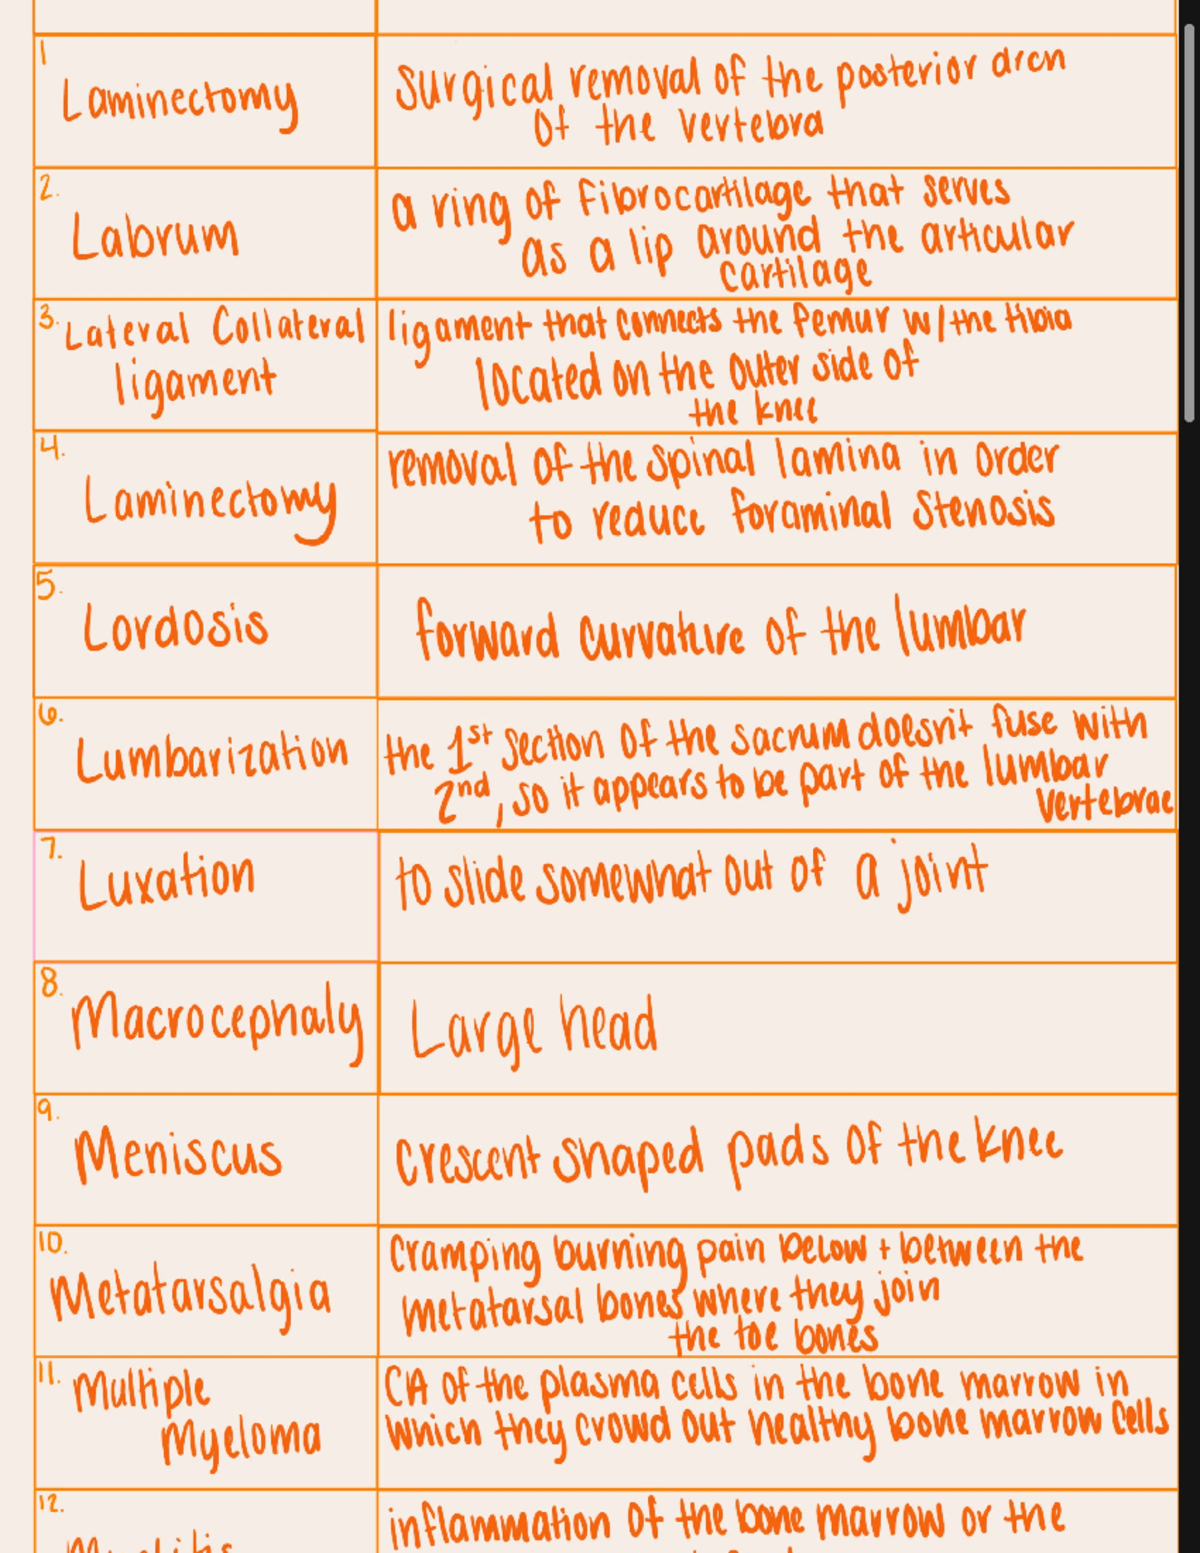 1
Laminectomy
Surgical removal of the posterior arch
of the vertebra
2.
Labrum
a ring of fibrocartilage that serves
as a lip around the articular
cartilage
3.
Lateral Collateral
ligament
ligament that connects the femur w/ the tibia
located on the outer side of
the knee
4.
Laminectomy
removal of the spinal lamina in order
to reduce foraminal stenosis
5.
Lordosis
forward curvature of the lumbar
6.
Lumbarization
the 1st section of the sacrum doesn't fuse with
2nd, so it appears to be part of the lumbar
vertebrae
7.
Luxation
to slide somewhat out of a joint
8.
Macrocephaly
Large head
9.
Meniscus
crescent shaped pads of the knee
10.
Metatarsalgia
cramping burning pain below + between the
metatarsal bones where they join
the toe bones
11.
Multiple
Myeloma
CA of the plasma cells in the bone marrow in
which they crowd out healthy bone marrow cells
12.
inflammation of the bone marrow or the